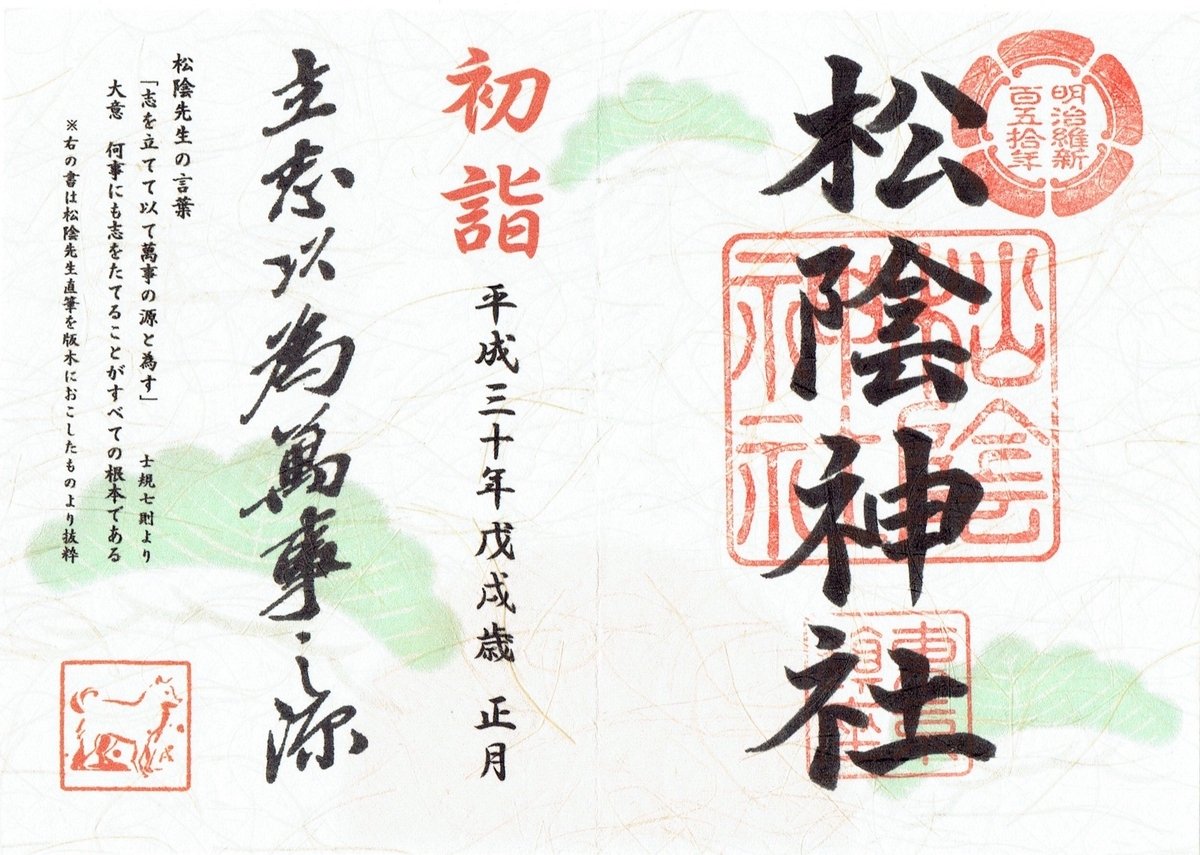 明治維新
百五拾年
松陰神社
松陰
神社
初詣
平成三十年戊戌歳 正月
立志以為萬事之源
松陰先生の言葉
「志を立てて以て萬事の源と為す」 士規七則より
大意 何事にも志をたてることがすべての根本である
※右の書は松陰先生直筆を版木におこしたものより抜粋